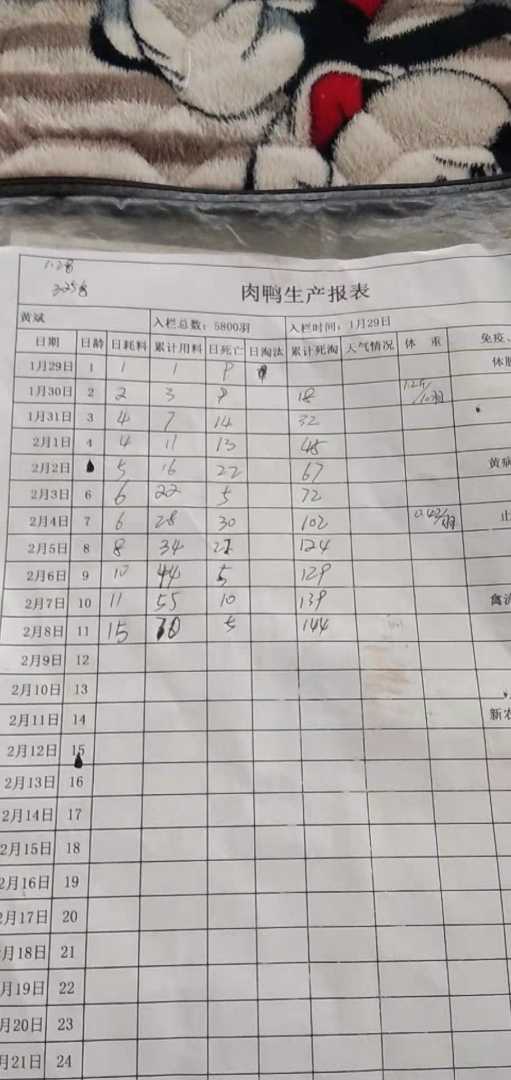 肉鸭生产报表
黄斌 入栏总数：5800羽 入栏时间：1月29日
日期 日龄 日耗料 累计用料 日死亡 日淘汰 累计死淘 天气情况 体 重 免疫、
1月29日 1 1 1 8
1月30日 2 2 3 8 18
1月31日 3 4 7 14 32
2月1日 4 4 11 13 45
2月2日 5 16 22 67 黄病
2月3日 6 6 22 5 72
2月4日 7 6 28 30 102 止
2月5日 8 8 34 22 124
2月6日 9 10 44 5 129
2月7日 10 11 55 10 139 禽流
2月8日 11 15 70 5 144
2月9日 12
2月10日 13
2月11日 14 新农
2月12日 15
2月13日 16
2月14日 17
2月15日 18
2月16日 19
2月17日 20
月18日 21
月19日 22
月20日 23
月21日 24